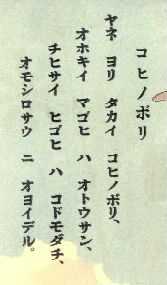 コヒノボリ
ヤネ ヨリ タカイ コヒノボリ、
オホキイ マゴヒ ハ オトウサン、
チヒサイ ヒゴヒ ハ コドモダチ、
オモシロサウ ニ オヨイデル。